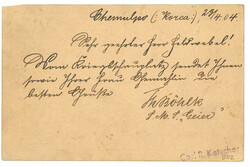 Chemulpo (Korea.), 29/4.04
Sehr geehrter Herr Feldwebel!
Vom Kriegsschauplatz sendet Ihnen
sowie Ihrer Frau Gemahlin die
besten Grüsse
Th. Böhlk
S.M.S. "Geier"